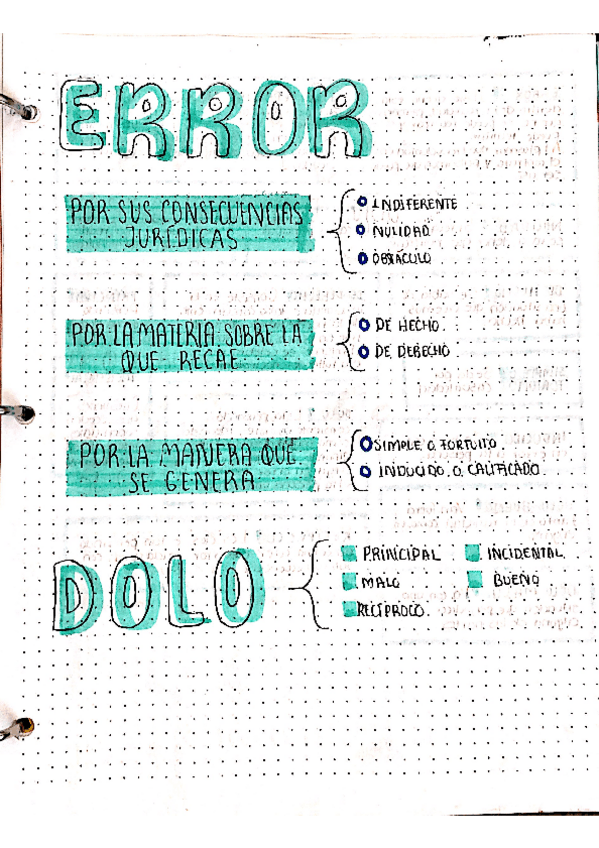 ERROR
POR SUS CONSECUENCIAS
JURÍDICAS
INDIFERENTE
NULIDAD
OBSTÁCULO
POR LA MATERIA SOBRE LA
QUE RECAE
DE HECHO
DE DERECHO
POR LA MANERA QUE
SE GENERA
SIMPLE O FORTUITO
INDUCIDO O CALIFICADO
DOLO
PRINCIPAL
INCIDENTAL
MALO
BUENO
RECÍPROCO